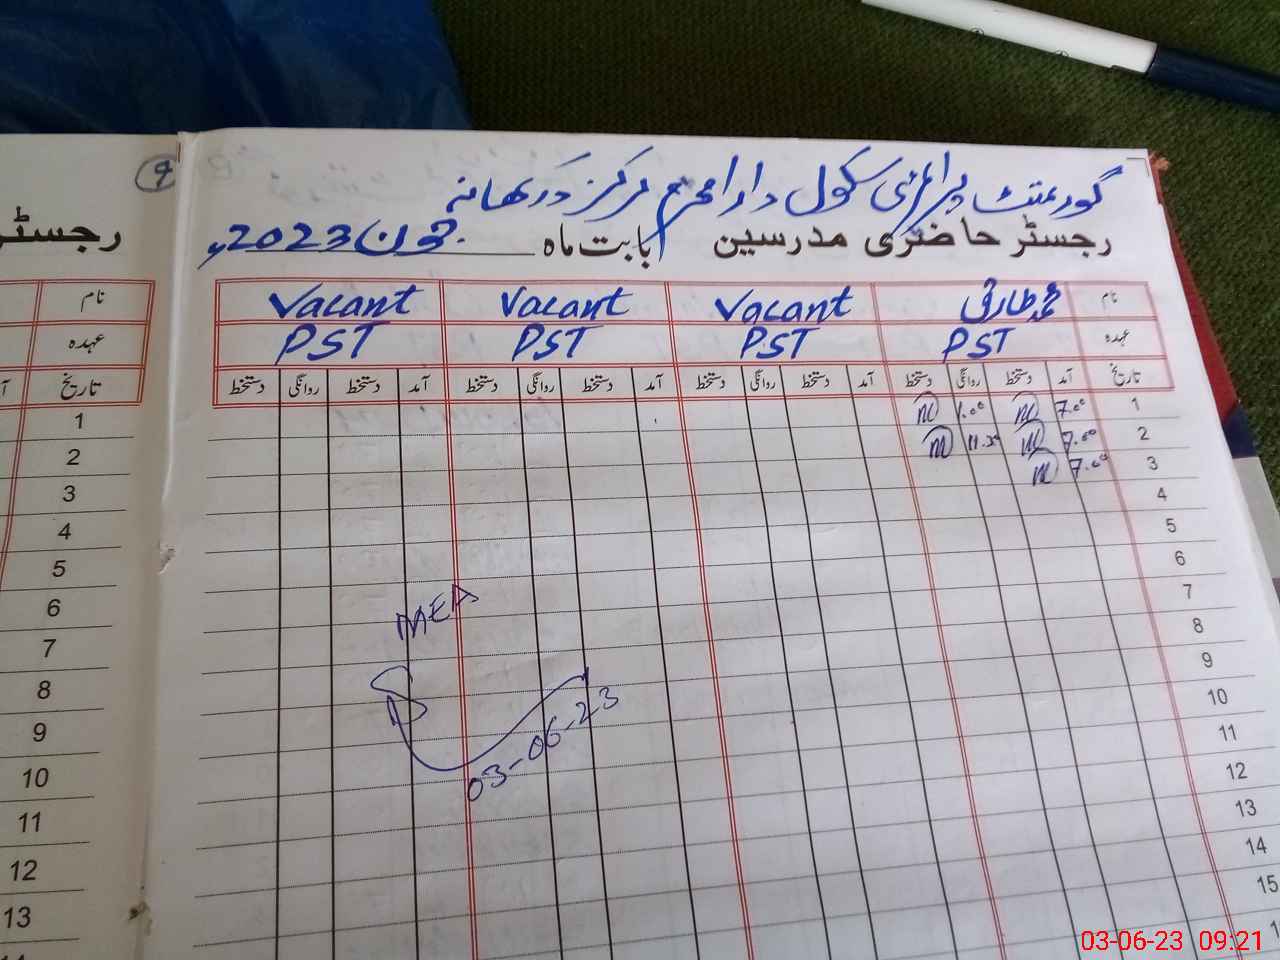 گورنمنٹ پرائمری سکول دارا محرم مرکز درکھانہ
رجسٹر حاضری مدرسین بابت ماہ جون 2023ء
نام محمد طارق Vacant Vacant Vacant
عہدہ PST PST PST PST
تاریخ آمد دستخط روانگی دستخط آمد دستخط روانگی دستخط آمد دستخط روانگی دستخط آمد دستخط روانگی دستخط
1 7.00 1.00
2 7.00 11.30
3 7.00
4
5
6
7
8
9
10
11
12
13
14
15
MEA
03-06-23
9
رجسٹر
نام
عہدہ
تاریخ
1
2
3
4
5
6
7
8
9
10
11
12
13
03-06-23 09:21